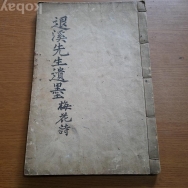 kobay
退溪先生遺墨
梅花詩